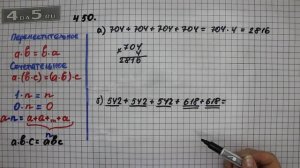 4 DA 5 .RU
Переместительное
a·b = b·a
Сочетательное
a·(b·c)=(a·b)·c
1·n = n
0·n = 0
a·n = a+a+...+a
n
a·b·c = abc
450.
а) 704 + 704 + 704 + 704 = 704·4 = 2816
× 704
4
2816
б) 542 + 542 + 542 + 618 + 618 =